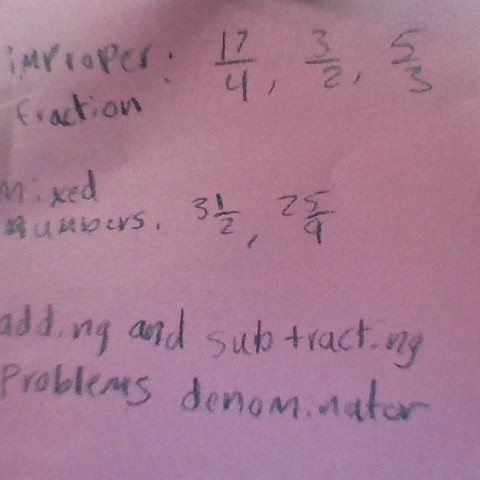 improper: 17/4, 3/2, 5/3
fraction
mixed
numbers. 3 1/2, 2 5/9
adding and subtracting
Problems denominator